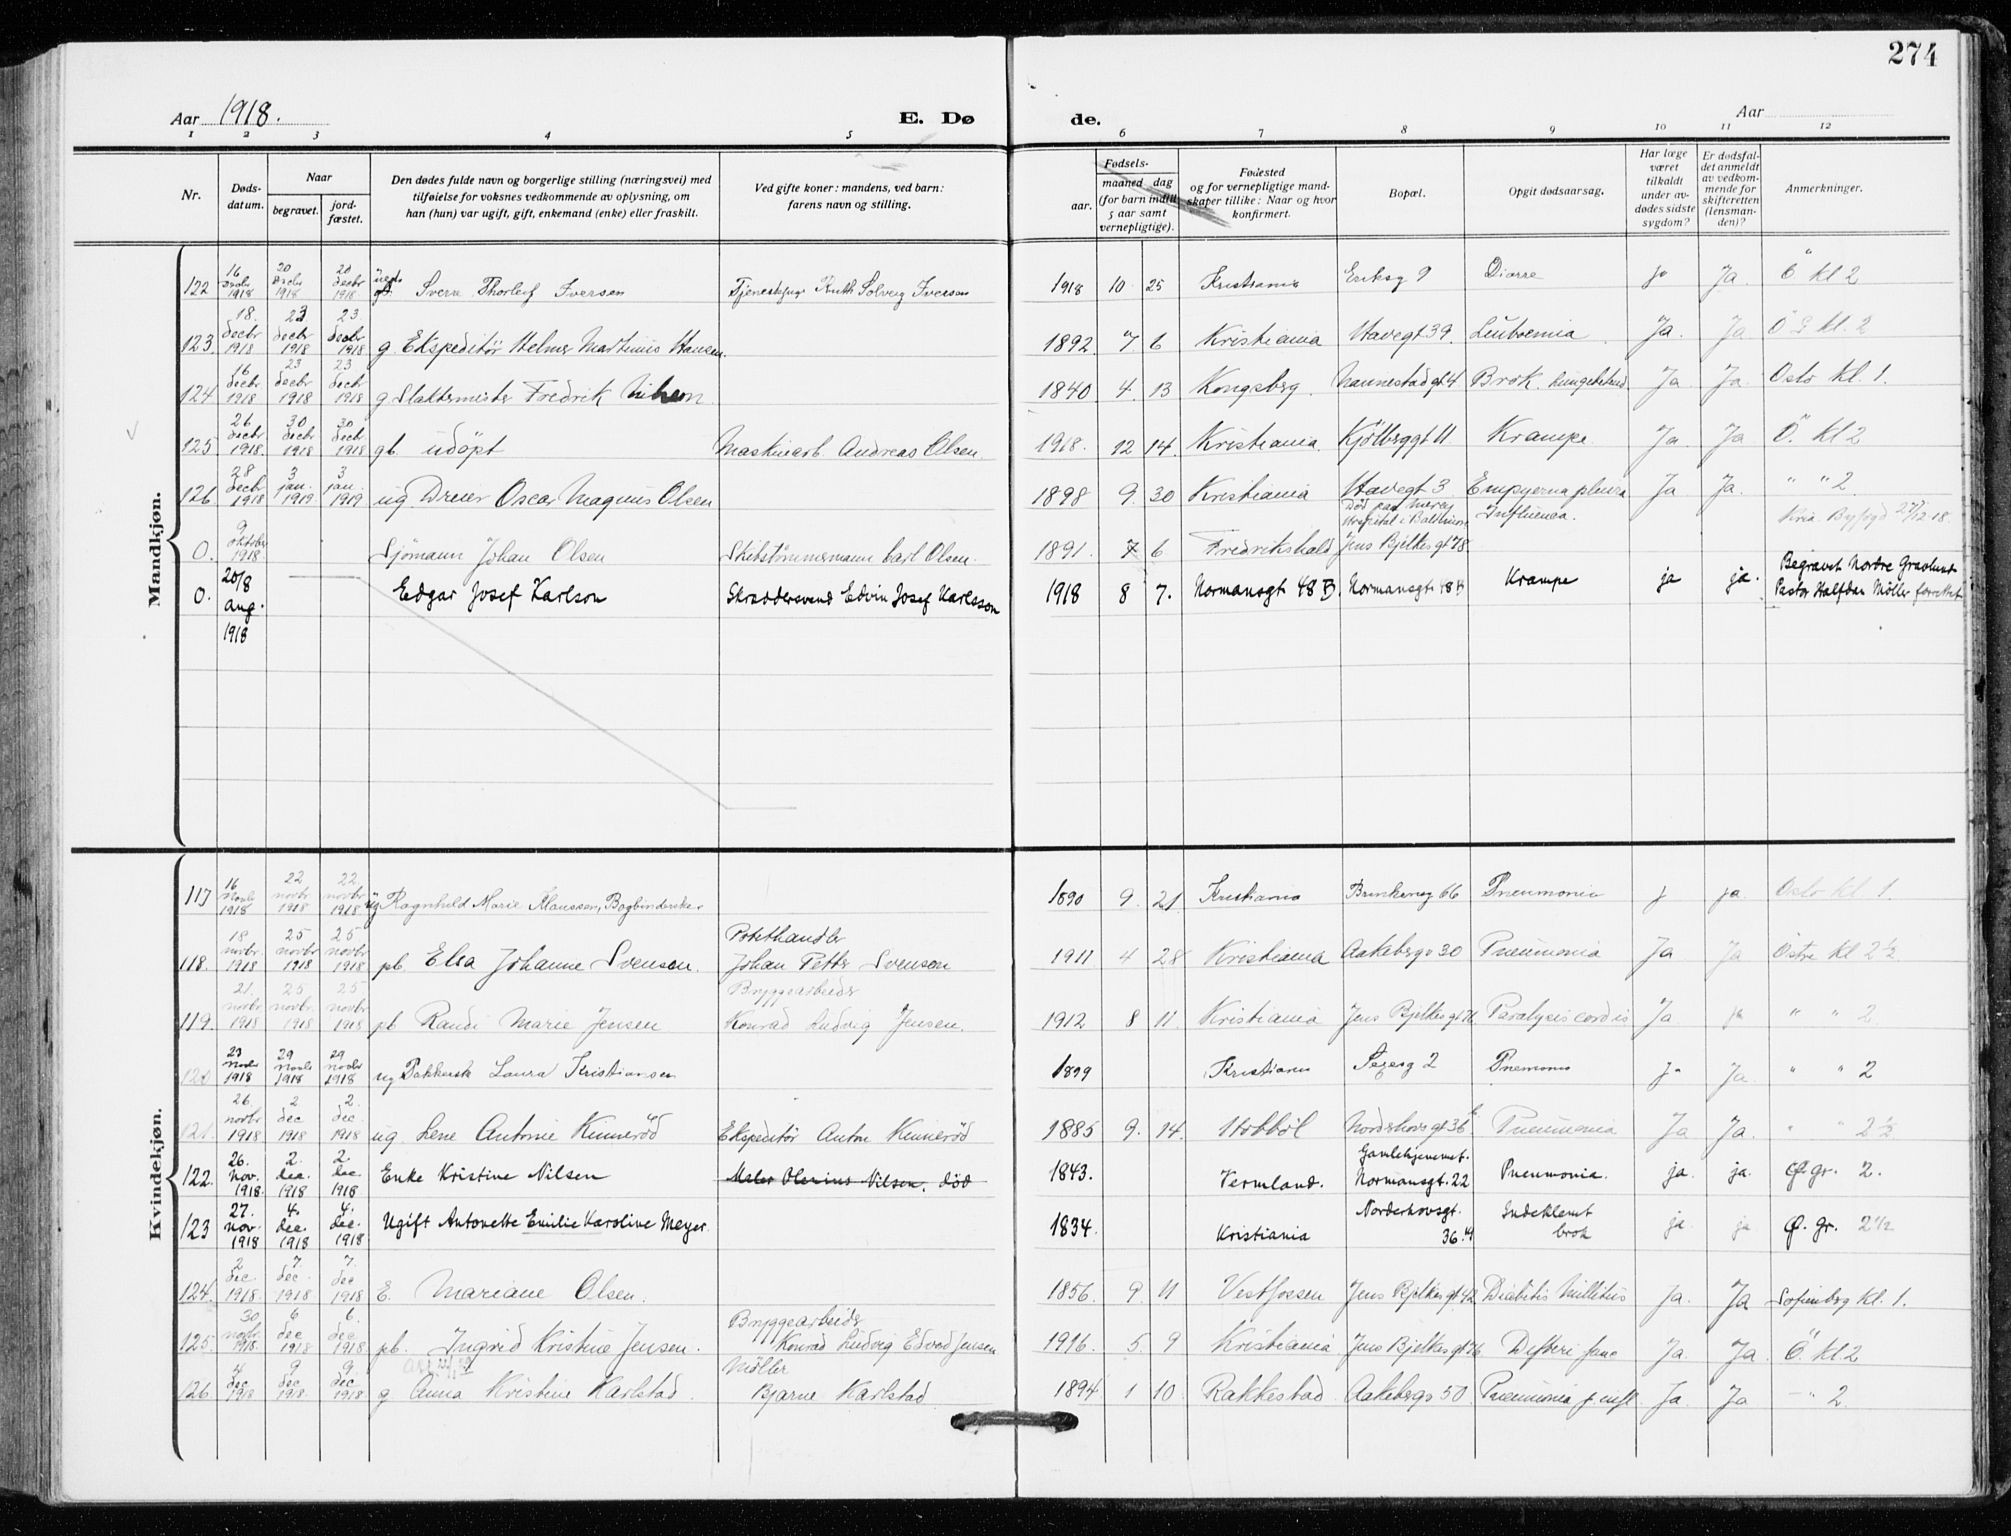 274
Aar 1918.
E. Dø
de.
Aar
1 2 3 4 5 6 7 8 9 10 11 12
Nr.
Døds-
datum.
Naar
begravet.
jord-
fæstet.
Den dødes fulde navn og borgerlige stilling (næringsvei) med
tilføielse for voksnes vedkommende av oplysning, om
han (hun) var ugift, gift, enkemand (enke) eller fraskilt.
Ved gifte koner: mandens, ved barn:
farens navn og stilling.
Fødsels-
aar.
maaned dag
(for barn indtil
5 aar samt
vernepligtige).
Fødested
og for vernepligtige mand-
skaper tillike: Naar og hvor
konfirmert.
Bopæl.
Opgit dødsaarsag.
Har læge
været
tilkaldt
under av-
dødes sidste
sygdom?
Er dødsfal-
det anmeldt
av vedkom-
mende for
skifteretten
(lensman-
den)?
Anmerkninger.
Mandkjøn.
122 16 Decbr 1918 20 Decbr 1918 20 decbr 1918 Sverre Thorleif Iversen Ruth Solveig Iversen 1918 10 25 Kristiania Eriksg 9 Diarre Ja Ö kl 2
123. 18. decbr 1918 23 decbr 1918 23. decbr 1918 g Ekspeditör Helmer Martinius Hansen. 1892. 7 6 Kristiania Havegt 39. Leukemia Ja. Ja kl. 2
124 16 decbr. 1918 23 decbr 1918 23 decbr 1918 g Fredrik 1840 4. 13 Kongsberg. Nannestad gt 4 Brok Ja Ja. Oslo kl. 1.
125 26 decbr 1918. 30 decbr 1918 30 decbr 1918 gb. udöpt Maskinarb Andreas Olsen. 1918. 12 14. Kristiania. Kjölberggt 11 Krampe Ja Ja Ö. kl 2
126 28 decbr 1918 3 jan. 1919 3 jan. 1919 ug. Dreier Oscar Magnus Olsen 1898 9. 30 Kristiania Havegt 3 Empyema pleura Ja Ja. " " 2.
Influenca.
0. 9 oktober 1918. Sjömann Johan Olsen Skibstömmermann Carl Olsen. 1891. 7 6 Fredrikshald Jens Bjelkes gt 78 Kria. Byfogd 27/12-18.
0. 20/8 aug. 1918 Edgar Josef Karlson Skræddersvend Edvin Josef Karlsson 1918 8 7. Normansgt 48 B. Normansgt 48 B Krampe ja ja. Begravet Nordre Gravlund
Pastor Halfdan Möller forrettet
Kvindekjøn.
117 16 Novbr 1918 22 novbr 1918 22. novbr 1918 ug Ragnhild Marie Klaussen, Bogbinderske 1890 9. 21. Kristiania 66 Pneumonie J ja. Oslo kl. 1.
118. 18 novbr 1918 25 novbr 1918 25 novbr 1918 pb. Elsa Johanne Svensen. Potethandler
Johan Petter Svensen 1911 4 28 Kristiania Aakebergv 30 Pneumonia Ja Ja Östre kl 2½
119. 21. novbr 1918 25 novbr. 1918 25 novbr 1918 pb Randi Marie Jensen Bryggearbeider
Konrad Ludvig Jensen. 1912 8 11. Kristiania Jens Bjelkes gt 76 Paralysis cordis Ja ja " " 2.
120 23 Novbr 1918 29 Novbr 1918 29 novbr 1918 ug Pakkersk Laura Kristiansen 1899 Kristiania 2 Pnemonie Ja Ja. " " 2
121. 26. novbr 1918 2 dec 1918 2. dec. 1918 ug. Lene Antonie Kinneröd Ekspeditör Anton Kinneröd 1885 9. 14. Hobböl Nordrehovs gt 36 Pneumonia Ja Ja. " " 2½
122. 26. Nov. 1918. 2. dec. 1918 2. dec. 1918 Enke Kristine Nilsen Maler Olenius Nilsen. död 1843. Vermland. Gamlehjemmet.
Normansgt. 22 Pneumonia. ja. ja. Ø. gr. 2.
123 27. nov. 1918 4. dec. 1918 4. dec. 1918 Ugift Antonette Emilie Karoline Meyer. 1834. Kristiania Norderhovsgt.
36. Indeklemt
brok ja ja Ø. gr. 2½
124. 2 dec. 1918. 7. dec. 1918 7. dec 1918 E. Mariane Olsen. 1856. 9 11 Vestfossen Jens Bjelkes gt 42 Diabetis Millitus Ja. Ja Sofienberg kl. 1.
125. 30 novbr. 1918. 6 dec 1918 6. dec. 1918. pb. Ingrid Kristine Jensen. Bryggearbeider
Konrad Ludvig Edvard Jensen 1916. 5. 9 Kristiania Jens Bjelkes gt 76 Difteri Ja. Ja. Ö. kl 2
126. 4 dec 1918 9 dec 1918. 9. dec 1918. g Anna Kristine Karlstad. Möller
Bjarne Karlstad. 1894 1 10. Rakkestad Aakebergv 50 Pneumonia Ja. Ja " 2.